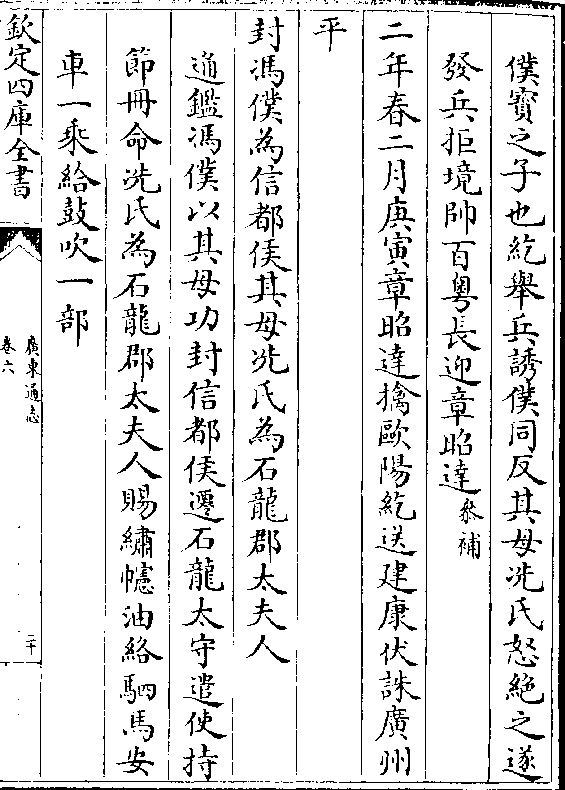 僕寶之子也紇舉兵誘僕同反其母冼氏怒絕之遂
發兵拒境帥百粵長迎章昭達叅補
二年春二月庚寅章昭達擒歐陽紇送建康伏誅廣州
平
封馮僕為信都侯其母冼氏為石龍郡太夫人
通鑑馮僕以其母功封信都侯遷石龍太守遣使持
節冊命冼氏為石龍郡太夫人賜繡幰油絡駟馬安
車一乘給鼓吹一部
欽定四庫全書
廣東通志
卷六
二十